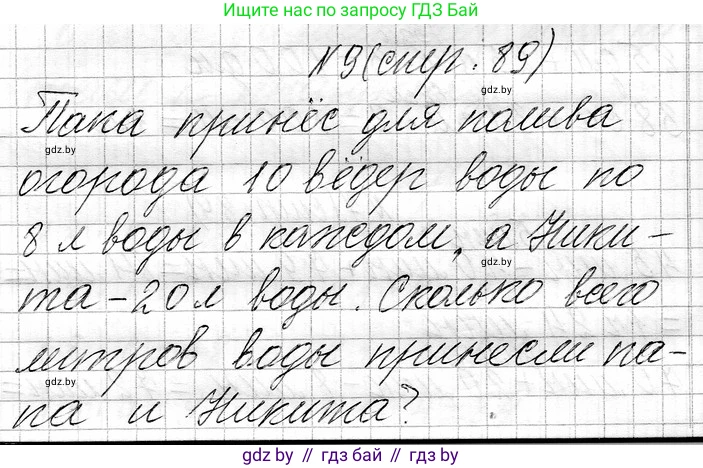 Ищите нас по запросу ГДЗ Бай
N 9 (стр. 89)
gdz.by
Папа принёс для полива
gdz.by
огорода 10 вёдер воды по
8 л воды в каждом, а Ники-
gdz.by
та - 20 л воды. Сколько всего
литров воды принесли па-
gdz.by
па и Никита?
gdz.by // гдз бай // гдз by